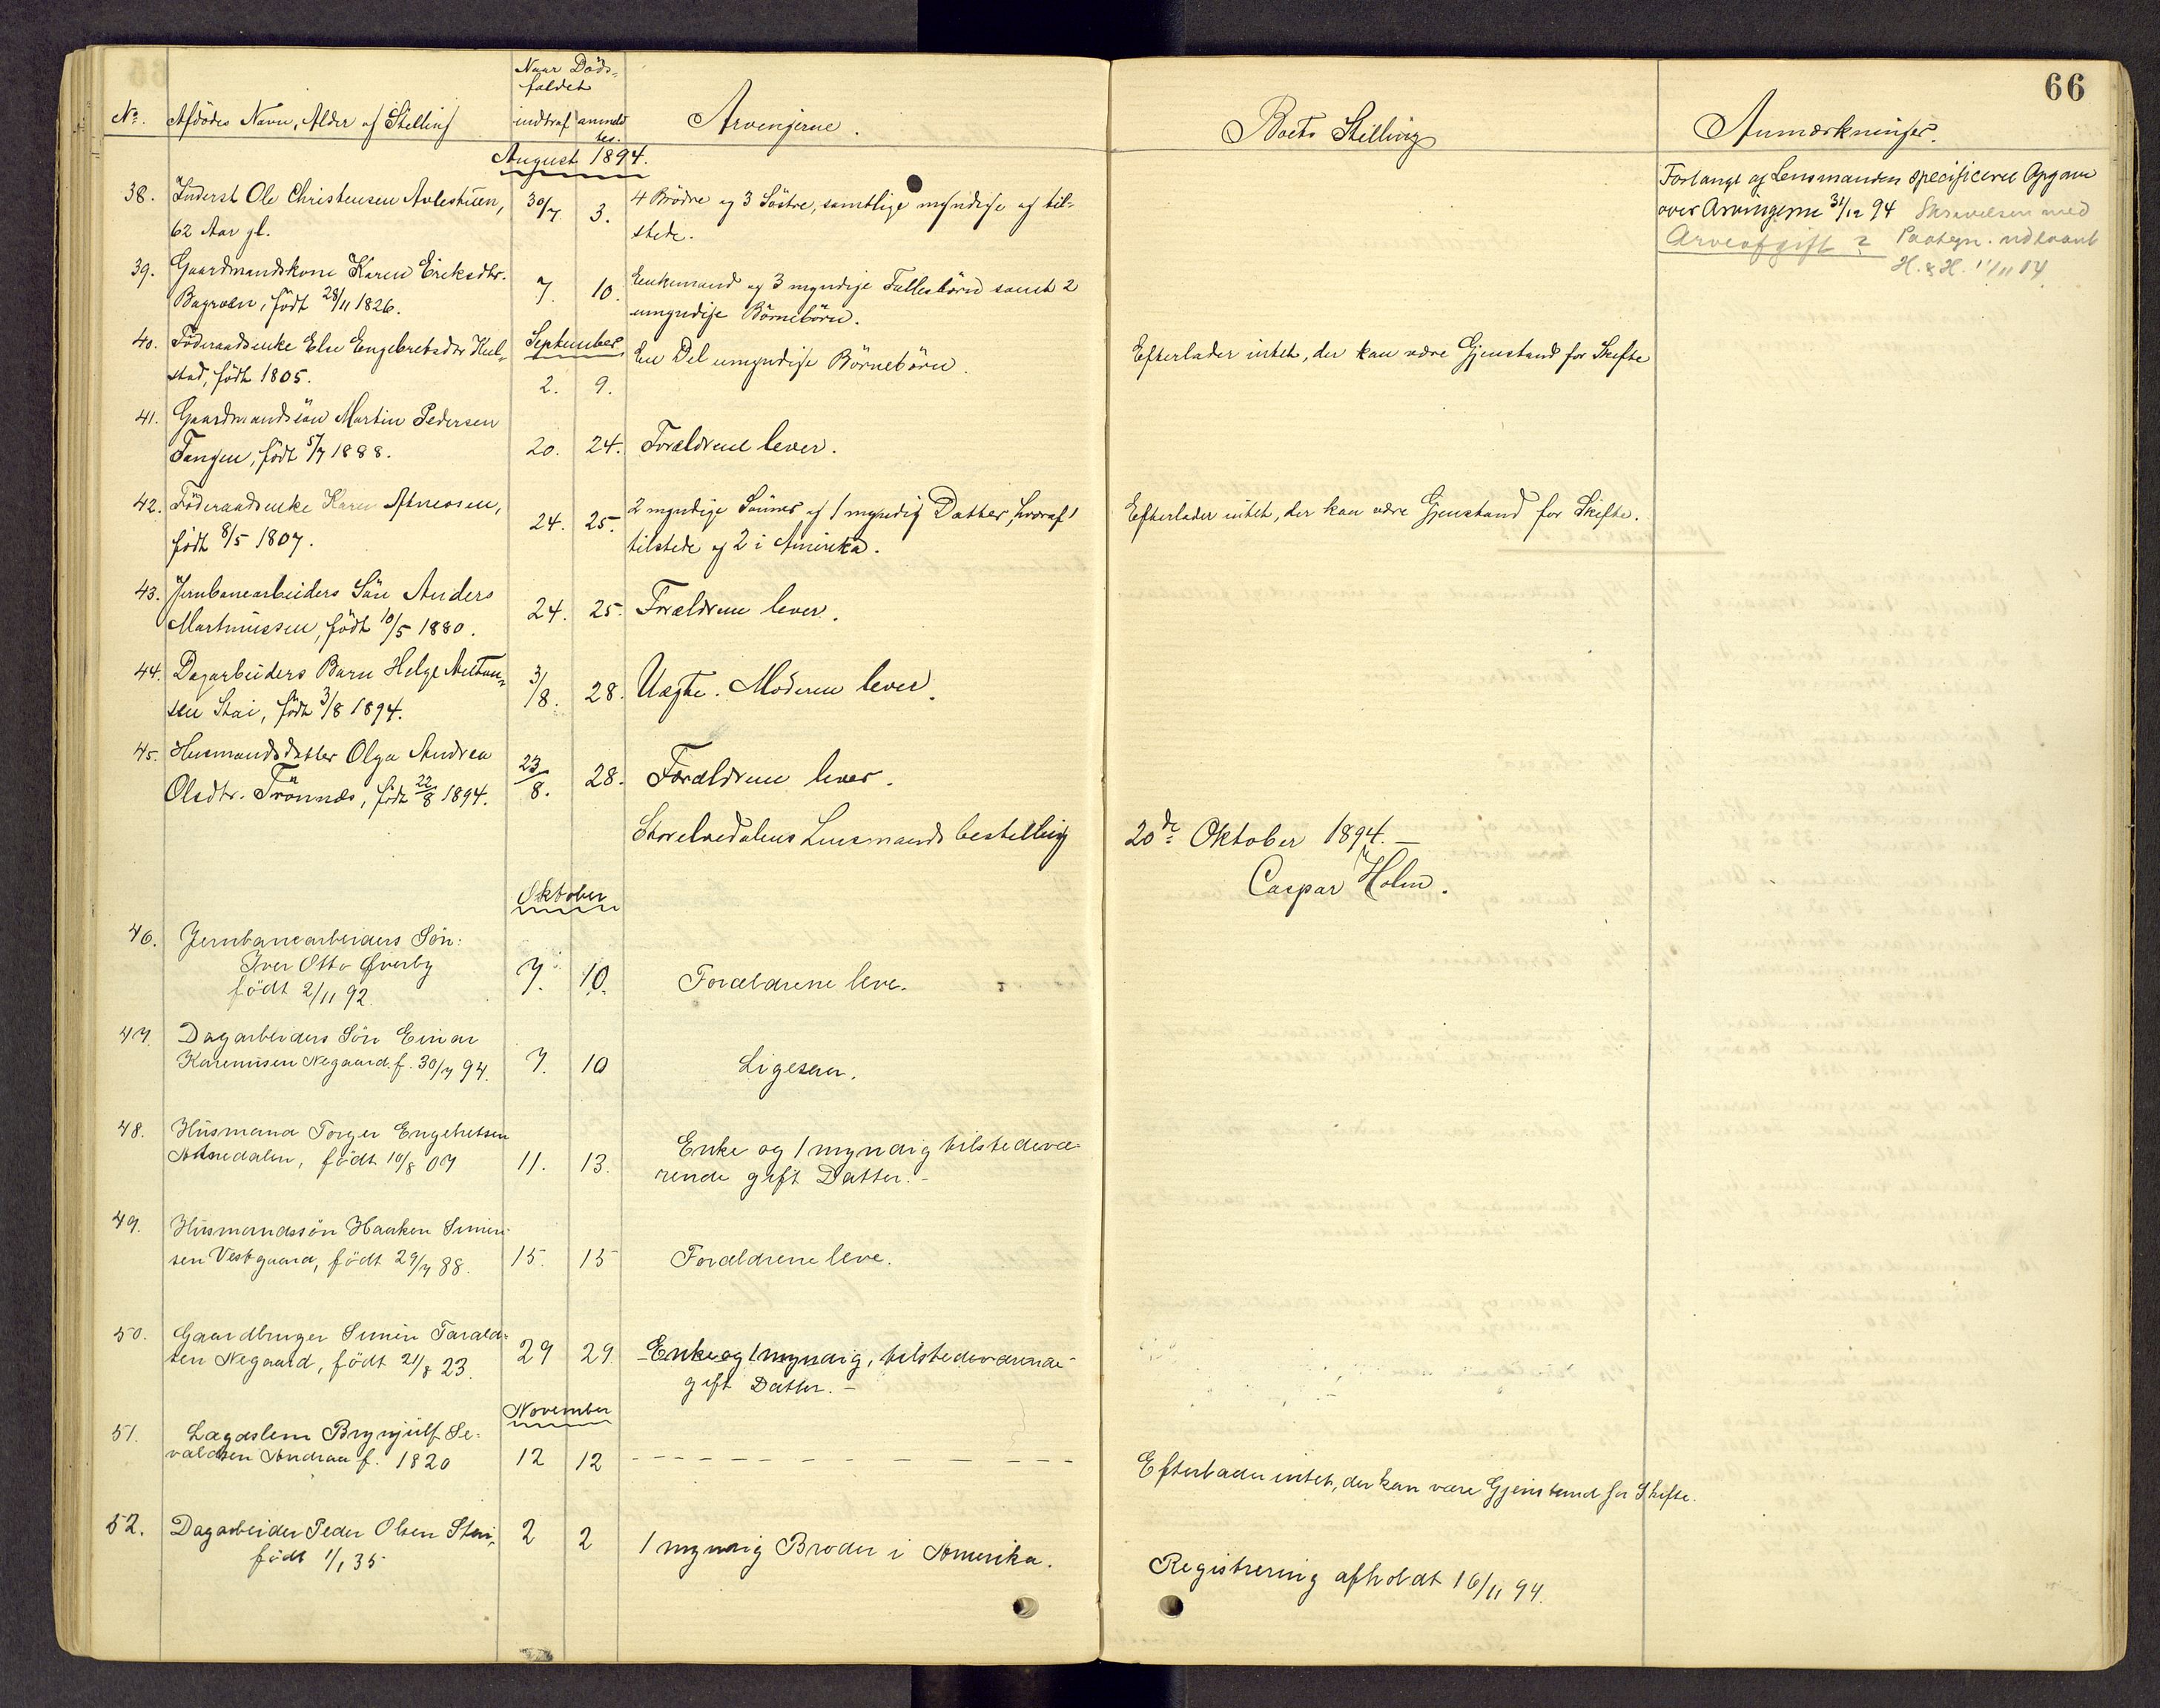 66
No. Afdödes Navn, Alder og Stilling
Naar Döds-
faldet
indtraf anmeld
tes.
Arvingerne.
Boets Stilling
Anmærkninger.
August 1894.
38. Inderst Ole Christensen
62 Aar gl.
30/7. 3.
4 Brödre og 3 Söstre, samtlige myndige og til-
stede.
Forlangt af Lensmanden specificeret Opgave
over Arvingerne 31/12 94 Skrivelsen med
Arveafgift? Paategn. udlaant
H. & H.
39. Gaardmandskone Karen Eriksdtr.
født 28/11 1826.
7. 10.
Enkemand og 3 myndige Fællesbörn samt 2
umyndige Börnebörn.
September
40. Föderaadsenke Else Engebretsdtr Kul-
stad, født 1805.
2. 9.
En Del umyndige Börnebörn.
Efterlader intet, der kan være Gjenstand for Skifte
41. Gaardmandssön Martin Pedersen
Tangen, født 5/7 1888.
20. 24.
Forældrene lever.
42. Föderaadsenke Karen Atneosen,
født 8/5 1807.
24. 25.
2 myndige Sönner og 1 myndig Datter, hvoraf 1
tilstede og 2 i Amerika.
Efterlader intet, der kan være Gjenstand for Skifte.
43. Jernbanearbeiders Sön Anders
Martinussen, født 10/5 1880.
24. 25.
Forældrene lever.
44. Dagarbeiders Barn Helge
sen Stai, født 3/8 1894.
3/8. 28.
Uægte. Moderen lever.
45. Husmandsdatter Olga Andrea
Olsdtr. Trönnæs, født 22/8 1894.
23/8. 28.
Forældrene lever.
Storelvedalens Lensmandsbestilling
20de Oktober 1894.—
Caspar Holm.
Oktober
46. Jernbanearbeiders Sön:
Iver Otto Øverby
födt 2/11 92.
7. 10.
Forældrene leve.
47. Dagarbeiders Sön Einar
Karenusen Negaard f. 30/7 94.
7. 10
Ligesaa.
48. Husmand Torger Engebretsen
Atnedalen, födt 10/8 07
11. 13.
Enke og 1 myndig tilstedevæ-
rende gift Datter.-
49. Husmandssön Haaken Simen-
sen Vestgaard, födt 29/7 88.
15. 15
Forældrene leve.
50. Gaardbruger Simen Tarald-
sen Negaard, födt 21/8 23.
29 29
Enke og 1 myndig, tilstedeværende
gift Datter.-
November
51. Lægdslem Brynjulf Se-
valdsen Andraa f. 1820
12 12
Efterlader intet, der kan være Gjenstand for Skifte.
52. Dagarbeider Peder Olsen Stai,
födt 1/1 35
2 2
1 myndig Broder i Amerika.
Registrering afholdt 16/11 94.